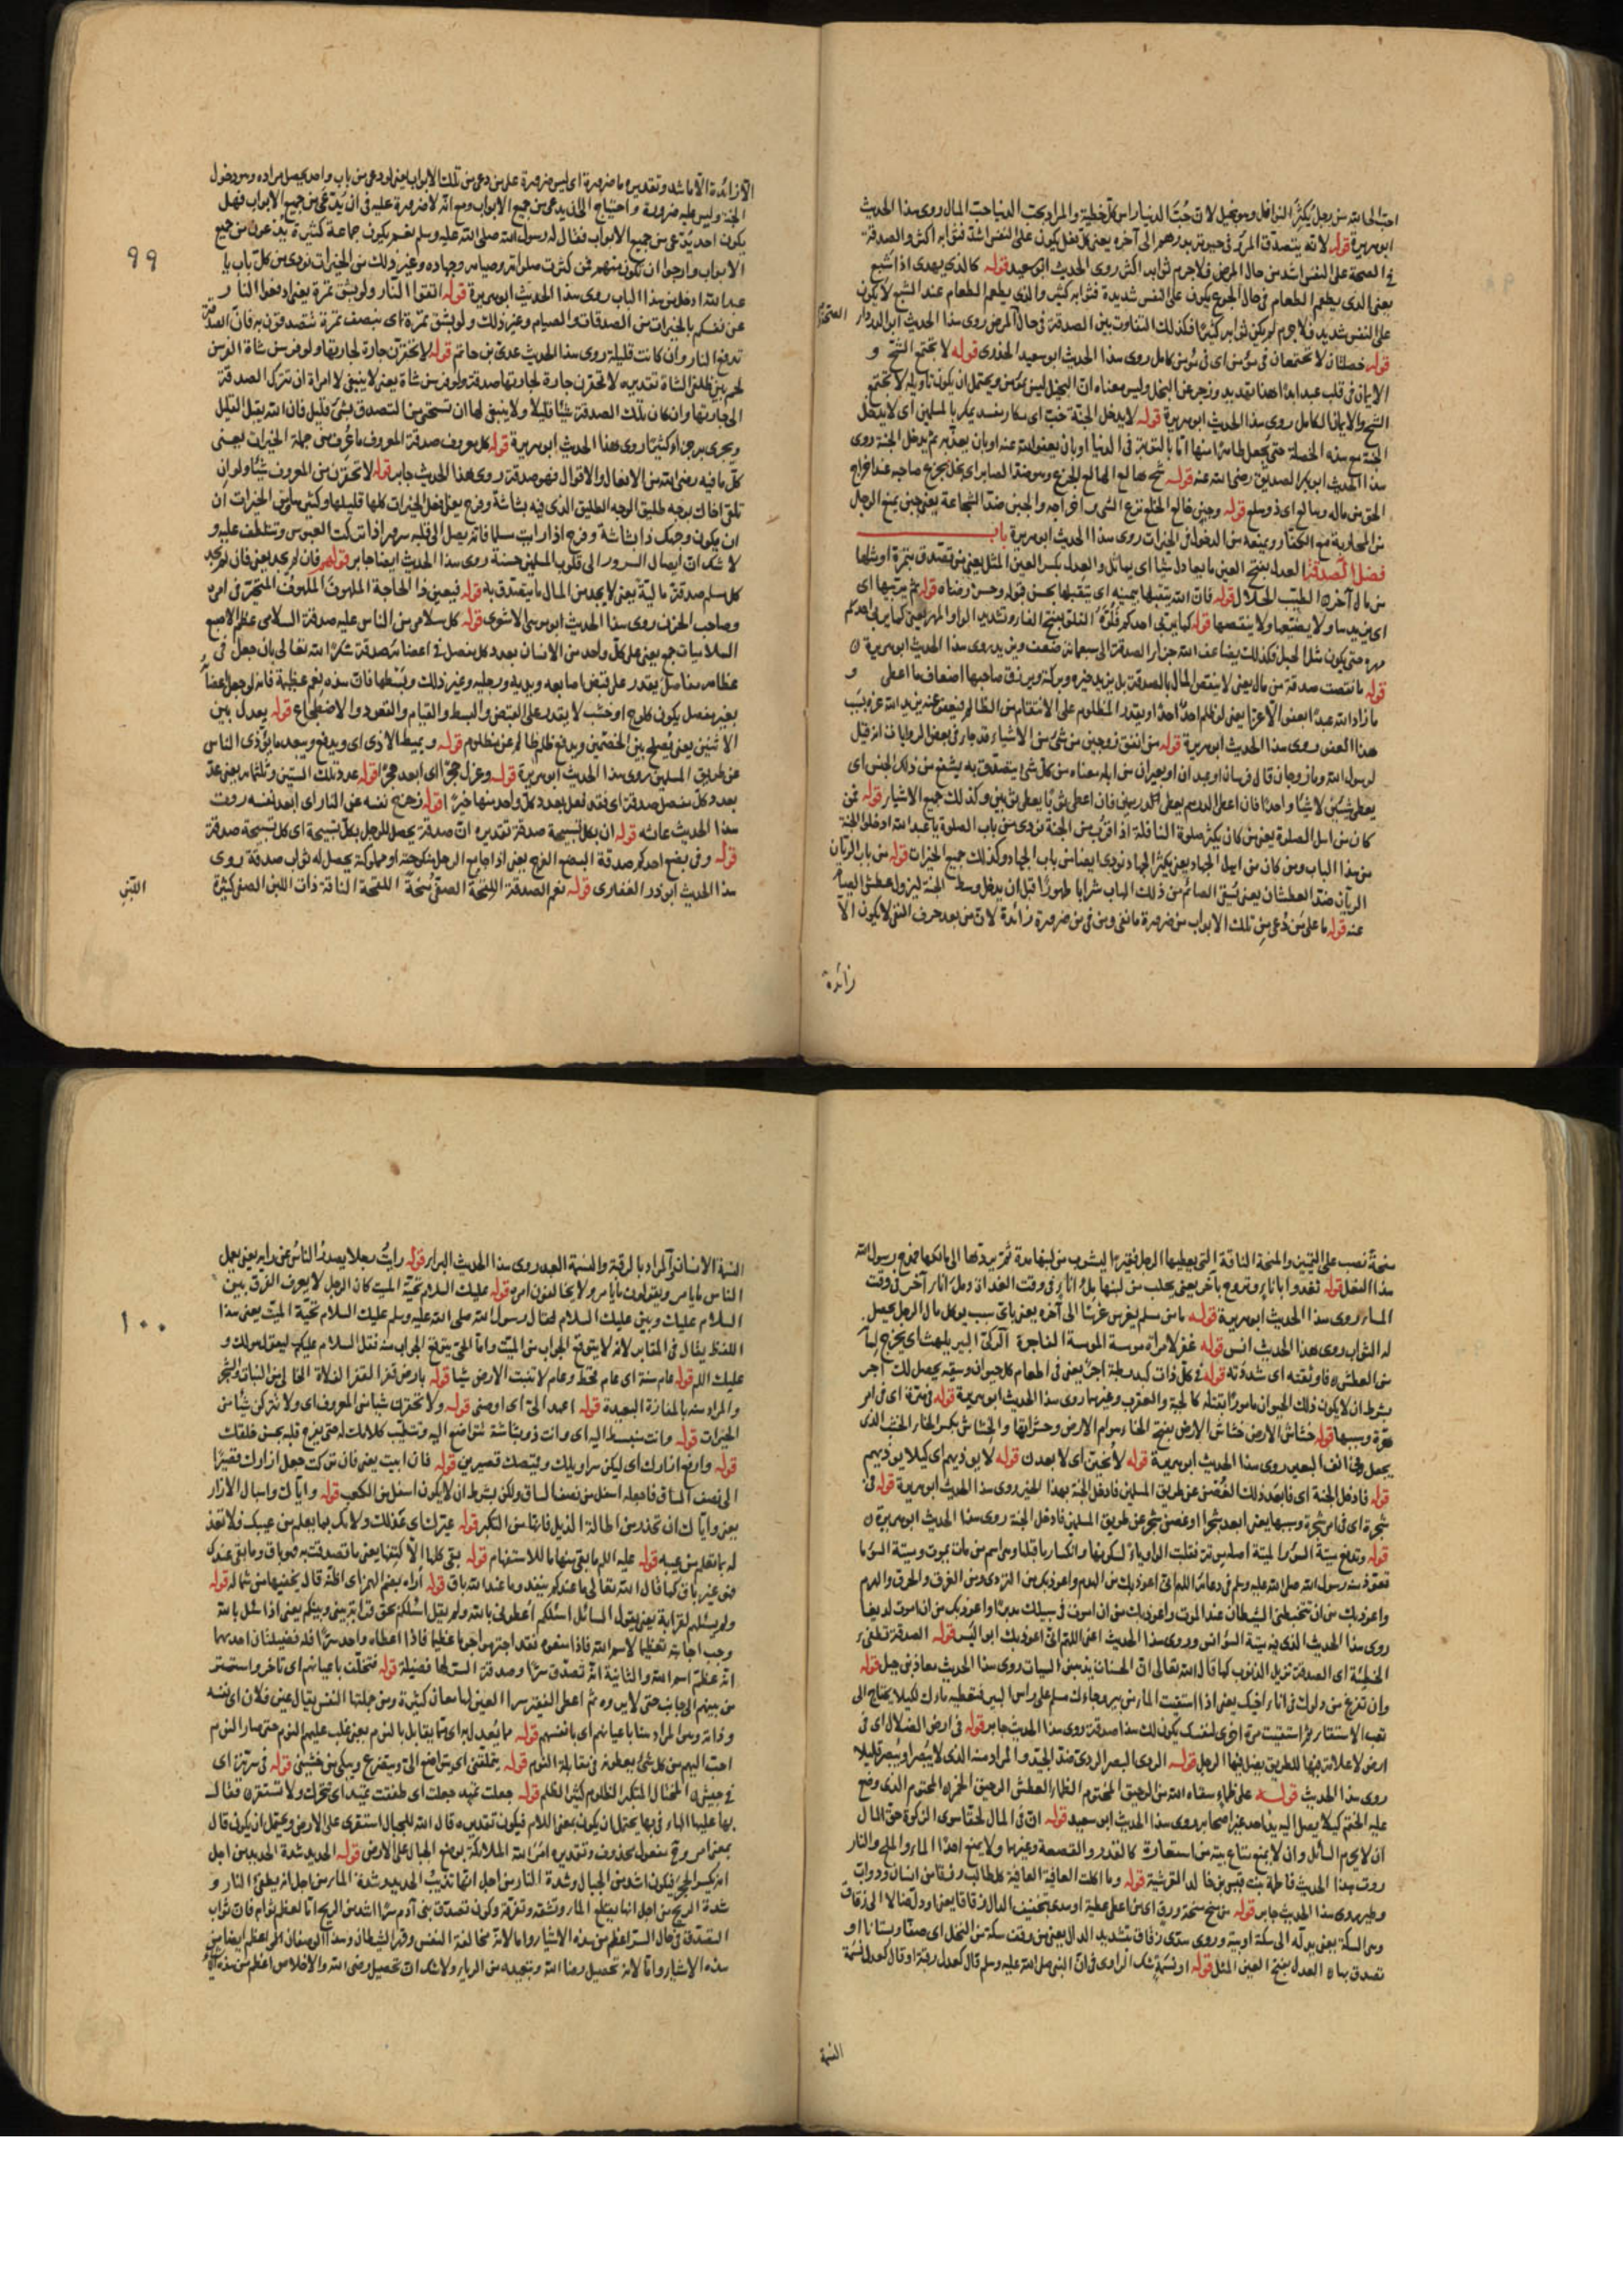 احب الى الله من رجل يكثر النوافل وهو بخيل لان حُبّ الدنيا رأس كل خطية والمراد بحب الدنيا حب المال روى هذا الحديث
ابو هريرة قوله لانه يتصدق المرء فى حيوته بدرهم الى آخره يعنى كل فعل يكون على النفس اشد فثوابه اكثر والصدقة
فى الصحة على النفس اشد من حال المرض فلا جرم ثوابه اكثر روى الحديث ابو سعيد قوله كالذى يهدى اذا شبع
يعنى الذى يطعم الطعام فى حال الجوع يكون على النفس شديدة فثوابه كثير والذى يطعم الطعام عند الشبع لا يكون
على النفس شديد فلا جرم لم يكن ثوابه كثيرا فكذلك التفاوت بين الصدقة فى حال المرض روى هذا الحديث ابو الدرداء
قوله خصلتان لا تجتمعان فى مؤمن اى فى مؤمن كامل روى هذا الحديث ابو سعيد الخدرى قوله لا يجتمع الشح و
الايمان فى قلب عبد ابدا هذا تهديد وزجر عن البخل وليس معناه ان البخيل ليس بمؤمن ويحتمل ان يكون تاويله لا يجتمع
الشح والايمان الكامل روى هذا الحديث ابو هريرة قوله لا يدخل الجنة خب اى مكار مفسد يمكر بالمسلمين اى لا يدخل
الجنة مع هذه الخصلة حتى يجعل طاهرا منها اما بالتوبة فى الدنيا او بان يعفو الله عنه او بان يعذبه ثم يدخل الجنة روى
هذا الحديث ابو بكر الصديق رضى الله عنه قوله شح هالع الهالع الجزع وهو ضد الصابر اى بخل يجزع صاحبه عند اخراج
الحق من ماله وهالع اى ذو هلع قوله وجبن خالع الخلع نزع الشىء واخراجه والجبن ضد الشجاعة يعنى جبن يمنع الرجل
من المحاربة مع الكفار ويمنعه من الدخول فى الخيرات روى هذا الحديث ابو هريرة باب
فضل الصدقة العدل بفتح العين ما يعادل شيا اى يماثل والعدل بكسر العين المثل يعنى من تصدق بتمرة او مثلها
من مال آخره الطيب الحلال قوله فان الله يتقبلها بيمينه اى يتقبلها بحسن قبوله وحسن رضاه قوله ثم يربيها اى
اى يزيدها ولا يضيعها ولا ينقصها قوله كما يربى احدكم فَلُوَّه الفلو بفتح الفاء وتشديد الواو المهر يعنى كما يربى احدكم
مهره حتى يكون مثل الجبل فكذلك يضاعف الله جزاء الصدقة الى سبعمائة ضعف ويزيد روى هذا الحديث ابو هريرة
قوله ما نقصت صدقة من مال يعنى لا ينقص المال بالصدقة بل يزيد خيره وبركته ويرزق صاحبها اضعاف ما اعطى و
ما زاد الله عبدا بعفو الا عزا يعنى لو ظلم احدٌ احدًا ويقدر المظلوم على الانتقام من الظالم فيعفو عنه يزيد الله عزه بسبب
هذا العفو روى هذا الحديث ابو هريرة قوله من انفق زوجين من شىء من الاشياء قد جاء فى بعض الروايات انه قيل
لرسول الله وما زوجان قال فرسان او عبدان او بعيران من ابله معناه من كل شىء يتصدق به يشفع من ذلك الجنس اى
يعطى شيئين لا شيئا واحدا فان اعطى الدرهم يعطى الدرهمين فان اعطى ثوبا يعطى ثوبين وكذلك جميع الاشياء قوله فمن
كان من اهل الصلوة يعنى من كان يكثر صلوة النافلة اذا قرب من الجنة نودى من باب الصلوة يا عبد الله ادخل الجنة
من هذا الباب ومن كان من اهل الجهاد يعنى يكثر الجهاد نودى ايضا من باب الجهاد وكذلك جميع الخيرات قوله من باب الريان
الريان ضد العطشان يعنى يُسقى الصائم من ذلك الباب شرابا طهورا قبل ان يدخل وسط الجنة ليزول عطش الصيام
عنه قوله ما على من دُعى من تلك الابواب من ضرورة ما نفى ومن فى من ضرورة زائدة لان من بعد حرف النفى لا يكون الا
زائدة
الا زائدة الا ما شذ وتقديره ما ضرورة اى ليس ضرورة على من دعى من تلك الابواب يعنى لو دعى من باب واحد يحصل مراده وهو دخول
الجنة وليس عليه ضرورة واحتياج الى ان يدعى من جميع الابواب ومع انه لا ضرورة عليه فى ان يُدّعى من جميع الابواب فهل
يكون احد يُدعى من جميع الابواب فقال له رسول الله صلى الله عليه وسلم نعم يكون جماعة كثيرة يدعون من جميع
الابواب وارجو ان تكون منهم فمن كثرت صلواته وصيامه وجهاده وغير ذلك من الخيرات نودى من كل باب يا
عبد الله ادخل من هذا الباب روى هذا الحديث ابو هريرة قوله اتقوا النار ولو بشق تمرة يعنى ادفعوا النار
عن نفسكم بالخيرات من الصدقات والصيام وغير ذلك ولو بشق تمرة اى بنصف تمرة تتصدقون به فان الصدقة
تدفع النار وان كانت قليلة روى هذا الحديث عدى بن حاتم قوله لا تحقرن جارة لجارتها ولو فرسن شاة الفرسن
لحم بين ظلفى الشاة تقديره لا تحقرن جارة لجارتها صدقة ولو فرسن شاة يعنى لا ينبغى لامراة ان تترك الصدقة
الى جارتها وان كان تلك الصدقة شيئا قليلا ولا ينبغى لها ان تستحيى من التصدق بشىء قليل فان الله يقبل القليل
ويجزى به جزاء كثيرا روى هذا الحديث ابو هريرة قوله كل معروف صدقة المعروف ما عُرف من جملة الخيرات يعنى
كل ما فيه رضى الله من الافعال والاقوال فهو صدقة روى هذا الحديث جابر قوله لا تحقرن من المعروف شيئا ولو ان
تلقى اخاك بوجه طليق الوجه الطليق الذى فيه بشاشة وفرح يعنى افعل الخيرات كلها قليلها وكثيرها ومن الخيرات ان
ان يكون وجهك ذا بشاشة وفرح اذا رايت مسلما فانه يصل الى قلبه سرور اذا تركت العبوس وتتلطف عليه و
لا شك ان ايصال السرور الى قلوب المسلمين حسنة روى هذا الحديث ايضا جابر قوله فان لم يجد يعنى فان لم يجد
كل مسلم صدقة مالية يعنى لا يجد من المال ما يتصدق به قوله فيعين ذا الحاجة الملهوف الملهوف المتحير فى امره
وصاحب الحزن روى هذا الحديث ابو موسى الاشعرى قوله كل سلامى من الناس عليه صدقة السلامى عظم الاصبع
السلاميات جمع يعنى على كل واحد من الانسان بعدد كل مفصل فى اعضائه صدقة شكرا لله تعالى بان جعل فى
عظامه مفاصل يقدر على قبض اصابعه ويديه ورجليه وغير ذلك وبسطها فان هذه نعم عظيمة فانه لو جعل اعضاءه
بغير مفصل يكون كلوح او خشب لا يقدر على القبض والبسط والقيام والقعود والاضطجاع قوله يعدل بين
الاثنين يعنى يُصلح بين الخصمين ويدفع ظلم ظالم عن مظلوم قوله ويميط الاذى اى ويدفع ويبعد ما يؤذى الناس
عن طريق المسلمين روى هذا الحديث ابو هريرة قوله وعزل حجرا اى ابعد حجرا قوله عدد تلك الستين وثلثمائة يعنى عدّ
بعدد كل مفصل صدقة اى فقد فعل بعدد كل واحد منها خيرا قوله زحزح نفسه عن النار اى ابعد نفسه روت
هذا الحديث عائشه قوله ان بكل تسبيحة صدقة تقديره ان صدقة يحصل للرجل بكل تسبيحة اى كل تسبيحة صدقة
قوله وفى بضع احدكم صدقة البضع الفرج يعنى اذا جامع الرجل منكوحته او مملوكته يحصل له ثواب صدقة روى
هذا الحديث ابو ذر الغفارى قوله نعم الصدقة اللقحة الصفى مُنحة اللقحة الناقة ذات اللبن الصفى كثيرة
اللبن
٩٩
منحةً نصب على التمييز والمنحة الناقة التى يعطيها الرجل فقيرا ليشرب من لبنها مدة ثم يردها الى مالكها فمدح رسول الله
هذا الفعل قوله تغدو باناء وتروح بآخر يعنى يحلب من لبنها ملء اناء فى وقت الغداة وملء اناء آخر فى وقت
المساء روى هذا الحديث ابو هريرة قوله ما من مسلم يغرس غرسًا الى آخره يعنى باى سبب يوكل مال الرجل يحصل
له الثواب روى هذا الحديث انس قوله غفر لامراة مومسة المومسة الفاجرة الركى البير يلهث اى يخرج لسانه
من العطش فاوثقته اى شدّته قوله فى كل ذات كبد رطبة اجر يعنى فى اطعام كل حيوان وسقيه يحصل لك اجر
بشرط ان لا يكون ذلك الحيوان مامورا بقتله كالحية والعقرب وغيرهما روى هذا الحديث ابو هريرة قوله فى هرة اى فى امر
هرة وبسببها قوله خشاش الارض خشاش الارض بفتح الخاء هوام الارض وحشراتها والخشاش بكسر الخاء الخشب الذى
يجعل فى انف البعير روى هذا الحديث ابو هريرة قوله لانحين اى لابعدن قوله لا يوذيهم اى كيلا يوذيهم
قوله فادخل الجنة اى فابعد ذلك الغصن عن طريق المسلمين فادخل الجنة بهذا الخير روى هذا الحديث ابو هريرة قوله فى
شجرة اى فى امر شجرة وبسببها يعنى ابعد شجرا او غصن شجر عن طريق المسلمين فادخل الجنة روى هذا الحديث ابو هريرة
قوله وتدفع ميتة السوء الميتة اصله موتة فقلبت الواو ياء لسكونها وانكسار ما قبلها وهو اسم من مات يموت وميتة السوء ما
تعوذ منه رسول الله صلى الله عليه وسلم فى دعائه اللهم انى اعوذ بك من الهدم واعوذ بك من التردى ومن الغرق والحرق والهرم
واعوذ بك من ان يتخبطنى الشيطان عند الموت واعوذ بك من ان اموت فى سبيلك مدبرا واعوذ بك من ان اموت لديغا
روى هذا الحديث الذى فيه ميتة السوء انس وروى هذا الحديث اعنى اللهم انى اعوذ بك ابو اليسر قوله الصدقة تطفئ
الخطيئة اى الصدقة تزيل الذنوب كما قال الله تعالى ان الحسنات يذهبن السيات روى هذا الحديث معاذ بن جبل قوله
وان تفرغ من دلوك فى اناء اخيك يعنى اذا استقيت الماء من بير وجاءك مسلم على راس البير فتعطيه ماءك لكيلا يحتاج الى
تعب الاستقاء ثم استقيت مرة اخرى لنفسك يكون لك هذا صدقة روى هذا الحديث جابر قوله فى ارض الضلال اى فى
ارض لا علامة فيها للطريق يضل فيها الرجل قوله الردى البصر الردى ضد الجيد والمراد منه الذى لا يبصر او يبصر قليلا
روى هذا الحديث قوله على ظماء سقاه الله من الرحيق المختوم الظماء العطش الرحيق الخمر المختوم الذى وضع
عليه الختم كيلا يصل اليه يد احد غير اصحابه روى هذا الحديث ابو سعيد قوله ان فى المال لحقا سوى الزكوة حق المال
ان لا يحرم السائل وان لا يمنع متاع بيته من استعاره كالقدر والقصعة وغيرها ولا يمنع احدا الماء والملح والنار
روت هذا الحديث فاطمة بنت قيس بن خالد القرشية قوله وما اكلت العافية العافية كل طالب رزقا من انسان ودواب
وطير روى هذا الحديث جابر قوله من منح منحة ورق اى من اعطى عطية او هدى بتخفيف الدال زقاقا يعنى او دل ضالا الى زقاق
وهو السكة يعنى يدله الى سكة او بيته وروى هدّى زقاق بتشديد الدال يعنى من وقف سكة من النخل اى صفا وبستانا او
تصدق بها العدل بفتح العين المثل قوله او نسمة شك الراوى فى ان النبى صلى الله عليه وسلم قال كعدل رقبة او قال كعدل نسمة
النسمة
النسمة الانسان والمراد بالرقبة والنسمة العبد روى هذا الحديث البراء قوله رايتُ رجلا يصدر الناس عن رايه يعنى يعمل
الناس ما يامر ويقولون ما يامر ولا يخالفون امره قوله عليك السلام تحية الميت كان الرجل لا يعرف الفرق بين
السلام عليك وبين عليك السلام فقال رسول الله صلى الله عليه وسلم عليك السلام تحية الميت يعنى هذا
اللفظ يقال فى المقابر لانه لا يتوقع الجواب من الميت واما الحى يتوقع الجواب منه فقل السلام عليكم ليقول لك و
عليك السلام قوله عام سنة اى عام قحط وعام لا تنبت الارض شيا قوله بارض قفر القفر الفلاة الخالى من النبات والشجر
والمراد منه بالمفازة البعيدة قوله اعهد الى اى اوصنى قوله ولا تحقرن شيا من المعروف اى ولا تترك شيا من
الخيرات قوله وانت منبسط اليه اى وانت ذو بشاشة تتواضع اليه وتطيب كلامك له حتى يفرح قلبه بحسن خلقك
قوله وارفع ازارك اى ليكن سراويلك وقميصك قصيرين قوله فان ابيت يعنى فان تركت جعل ازارك قصيرا
الى نصف الساق فاجعله اسفل من نصف الساق ولكن بشرط ان لا يكون اسفل من الكعب قوله واياك واسبال الازار
يعنى واياك ان تحذر من اطالة الذيل فانها من التكبر قوله عيّرك اى عذلك ولامك بما يعلم من عيبك فلا تعذله
له بما تعلم من عيبه قوله عليه السلام ما بقى منها ما للاستفهام قوله بقى كلها الا كتفها يعنى ما تصدقت به فهو باق وما بقى عندك
فهو غير باق كما قال الله تعالى ما عندكم ينفد وما عند الله باق قوله اراه بضم الهمزة اى اظنه قال يخفيها من شماله قوله
ولم يسئلهم لقرابة يعنى يقول السائل اسئلكم اعطونى بالله ولم يقل اسئلكم بحق قرابة بينى وبينكم يعنى اذا سئل بالله
وجب اجابته تعظيما لاسم الله فاذا منعوه فقد اجترموا جرما عظيما فاذا اعطاه واحد سرا فله فضيلتان احديهما
انه عظم اسم الله والثانية انه تصدق سرا وصدقة السر لها فضيلة قوله فتخلف باعيانهم اى تاخر واستتر
من بينهم الى جانب حتى لا يروه ثم اعطى الفقير سرا العين لها معان كثيرة ومن جملتها النفس يقال عين فلان اى نفسه
وذاته وهو المراد هنا باعيانهم اى بانفسهم قوله مما يُعدل به اى مما يقابل بالنوم يعنى غلب عليهم النوم حتى صار النوم
احب اليهم من كل شىء يجعلونه فى مقابلة النوم قوله يتملقنى اى يتواضع الى ويتضرع ويبكى من خشيتى قوله فى سرية اى
فى جيش المختال المتكبر الظلوم كثير الظلم قوله جعلت تميد جعلت اى طفقت تميد اى تتحرك ولا تستقر فقال
بها عليها الهاء فى بها يحتمل ان يكون بمعنى اللام فيكون تقديره قال الله للجبال استقرى على الارض ويحتمل ان يكون قال
بمعنى امر ومفعوله محذوف وتقديره امر الله الملائكة بوضع الجبال على الارض قوله الحديد شدة الحديد من اجل
انه يكسر الحجر فيكون اشد من الجبال وشدة النار من اجل انها تذيب الحديد وشدة الماء من اجل انه يطفئ النار و
شدة الريح من اجل انها يبتلع الماء وتنشفه وتفرقه وكون تصدق بنى آدم سرا اشد من الريح اما لعظم ثوابه فان ثواب
التصدق فى حال السر اعظم من هذه الاشياء واما لانه مخالفة النفس وقهر الشيطان وهذا الصفات التى اعظم ايضا من
هذه الاشياء واما لانه تحصيل رضا الله وتبعيده من الرياء ولا شك ان تحصيل رضى الله والاخلاص اعظم من هذه الاشياء
١٠٠